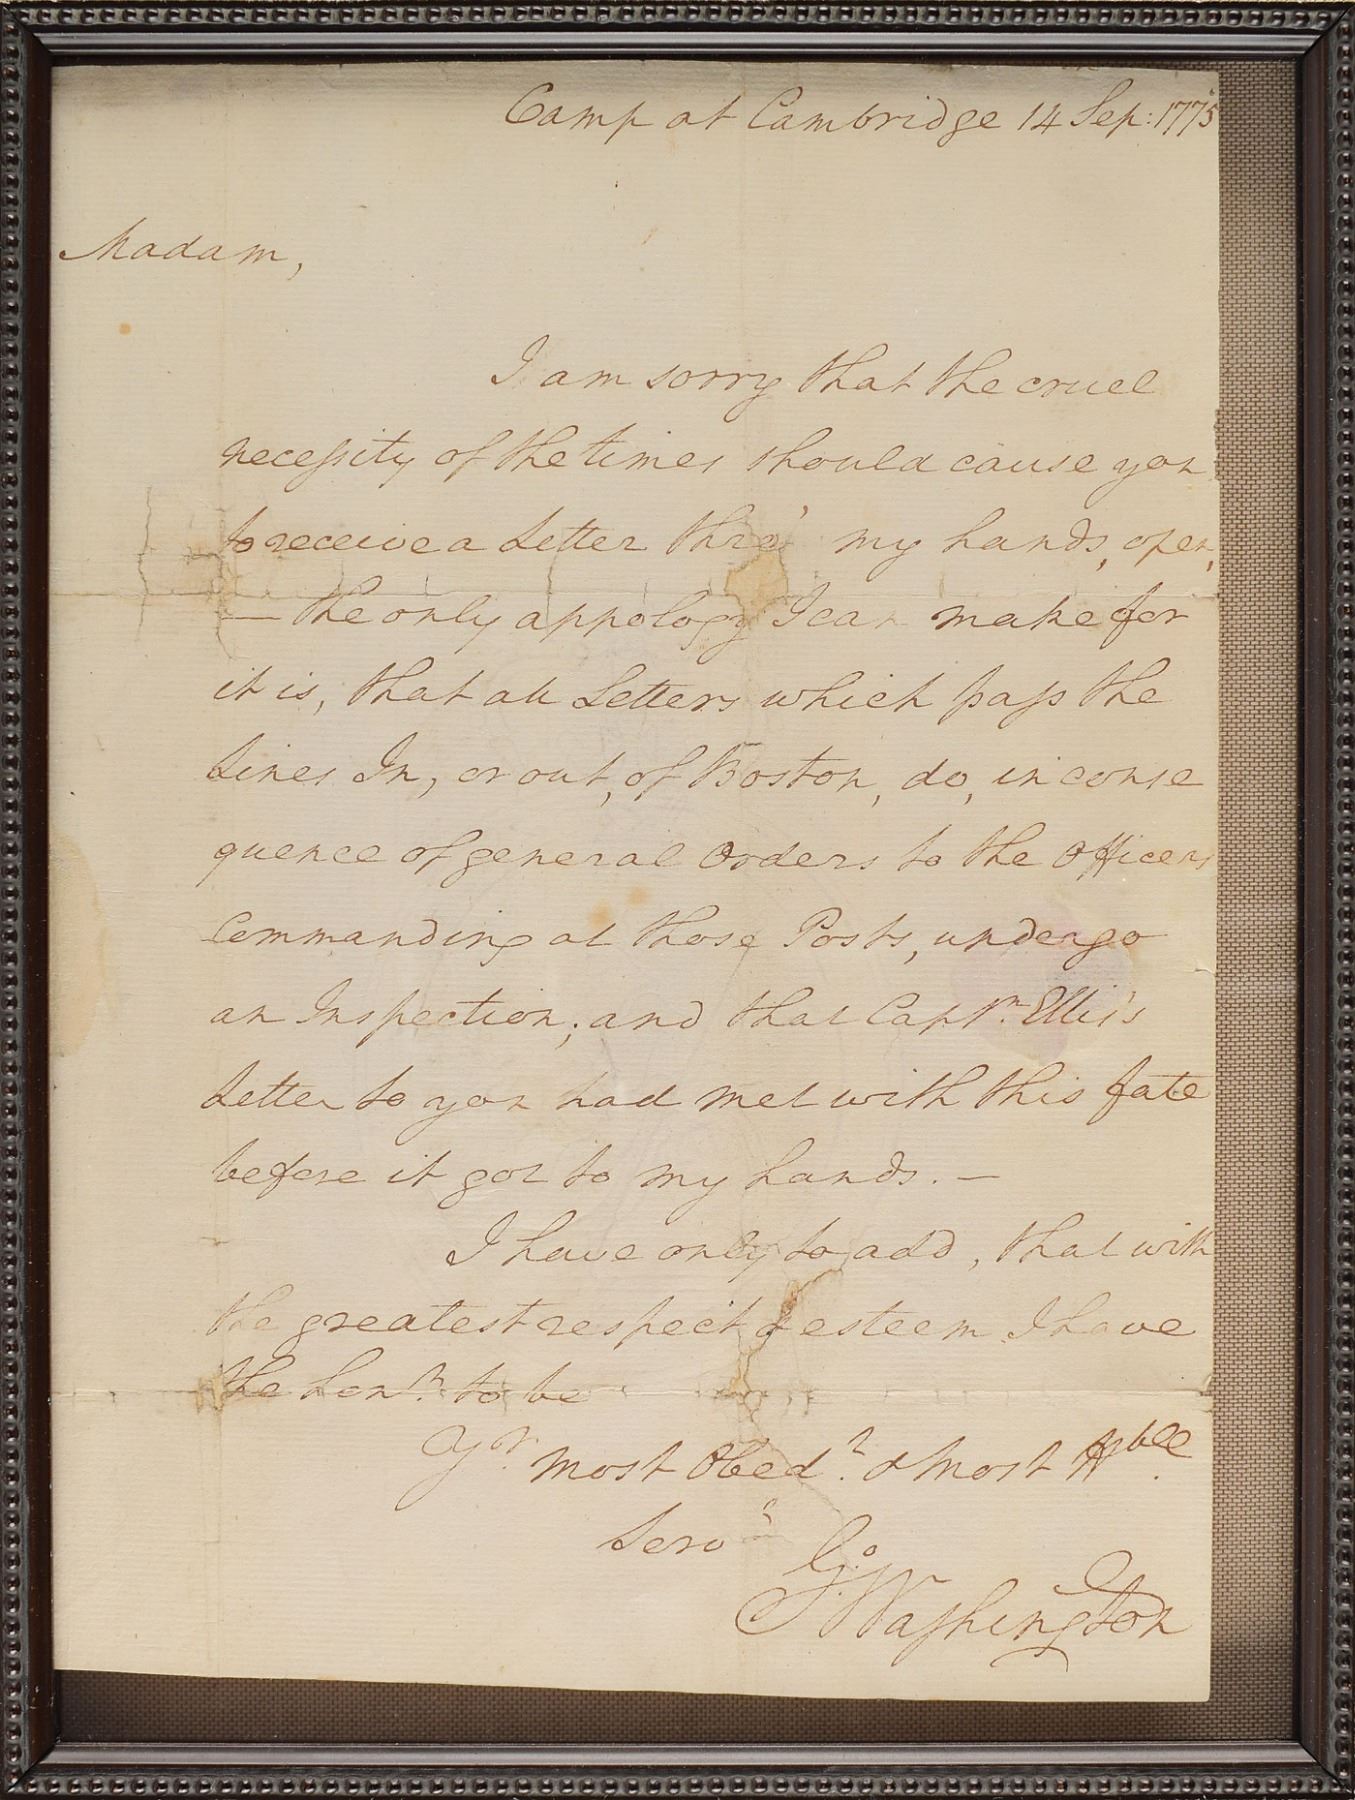 Camp at Cambridge 14 Sep: 1775
Madam,
I am sorry that the cruel
necessity of the times should cause you
to receive a Letter thro' my hands, open,
— the only appology I can make for
it is, that all Letters which pass the
Lines In, or out, of Boston, do, in conse
quence of general Orders to the Officers
Commanding at those Posts, undergo
an Inspection; and that Captn. Ellis's
Letter to you had met with this fate
before it got to my hands. —
I have only to add, that with
the greatest respect & esteem I have
the honr. to be
Yr. most Obedt. & most Hble.
Servt
Go: Washington